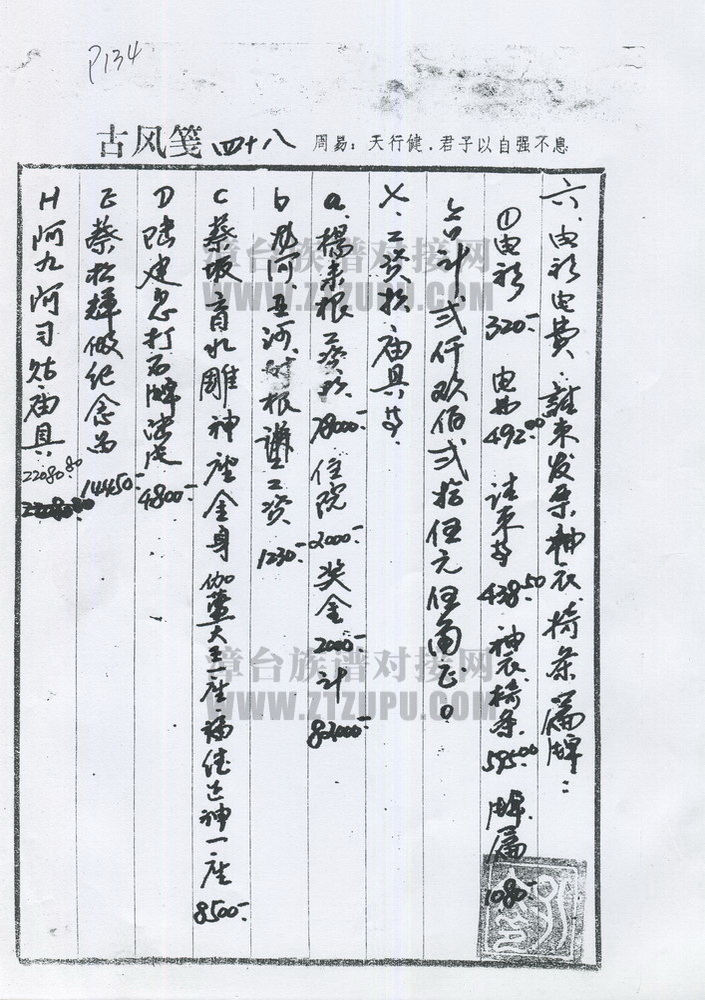 P134
古风笺 四十八 周易：天行健，君子以自强不息
六、电影电费、请柬发票、神衣、椅条、匾牌：
①电影 320.- 电费 492.00 请柬等 438.50 神衣椅条 595.00 牌匾 1080.-
合计弍仟玖佰弍拾伍元伍角正。
工资 庙具等
a. 杨来根工资款 78000.- 住院 2000.- 奖金 2000.- 计 82000.-
b. 根 工资 1230.-
C 蔡坂 雕神座金身伽蓝大王一座福德正神一座 8500.-
D 陆建忠打石牌 4800.-
E 蔡松辉做纪念品 14450.-
H 阿九阿司 庙具 22080.80
漳台族谱对接网
WWW.ZTZUPU.COM
漳台族谱对接网
WWW.ZTZUPU.COM